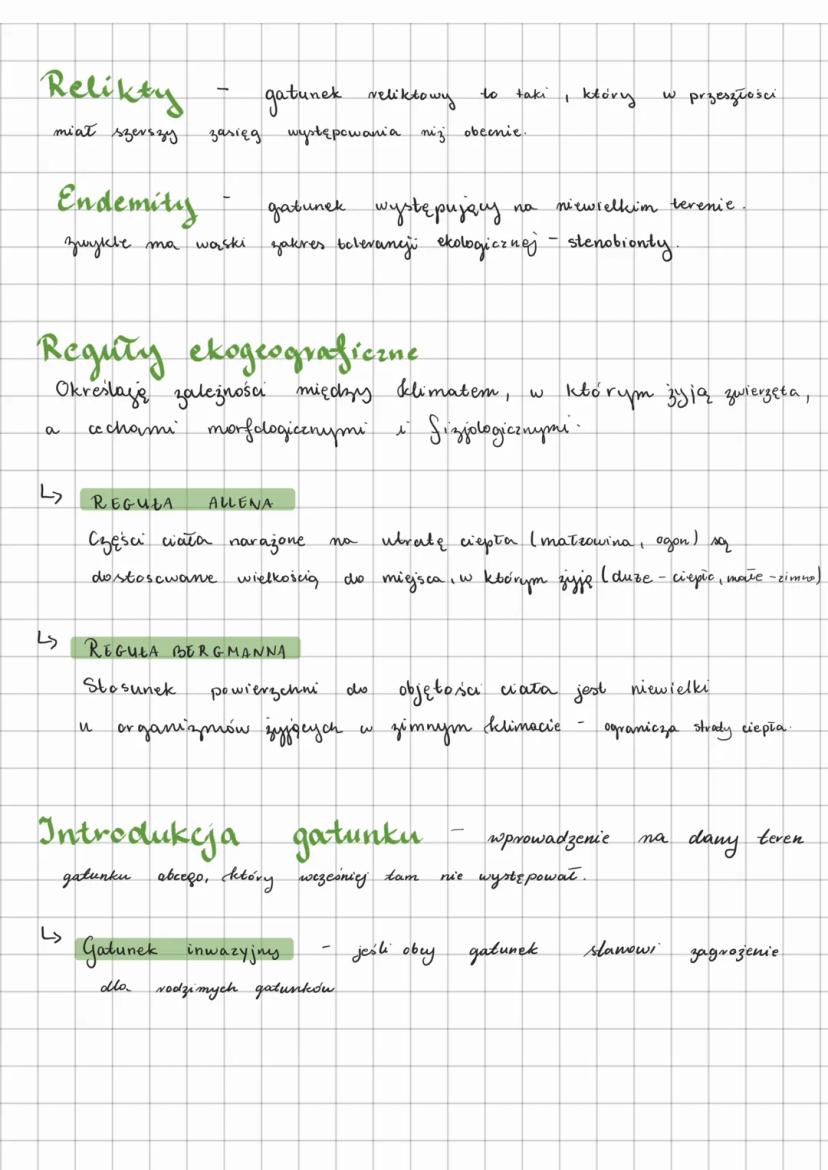 Relikty - gatunek reliktowy to taki, który w przeszłości
miał szerszy zasięg występowania niż obecnie.
Endemity - gatunek występujący na niewielkim terenie.
zwykle ma wąski zakres tolerancji ekologicznej - stenobionty.
Reguły ekogeograficzne
Określają zależności między klimatem, w którym żyją zwierzęta,
a cechami morfologicznymi i fizjologicznymi.
↳ REGUŁA ALLENA
Części ciała narażone na utratę ciepła (małżowina, ogon) są
dostosowane wielkością do miejsca, w którym żyją (duże - ciepło, małe - zimno)
↳ REGUŁA BERGMANNA
Stosunek powierzchni do objętości ciała jest niewielki
u organizmów żyjących w zimnym klimacie - ogranicza straty ciepła.
Introdukcja gatunku - wprowadzenie na dany teren
gatunku obcego, który wcześniej tam nie występował.
↳ Gatunek inwazyjny - jeśli obcy gatunek stanowi zagrożenie
dla rodzimych gatunków